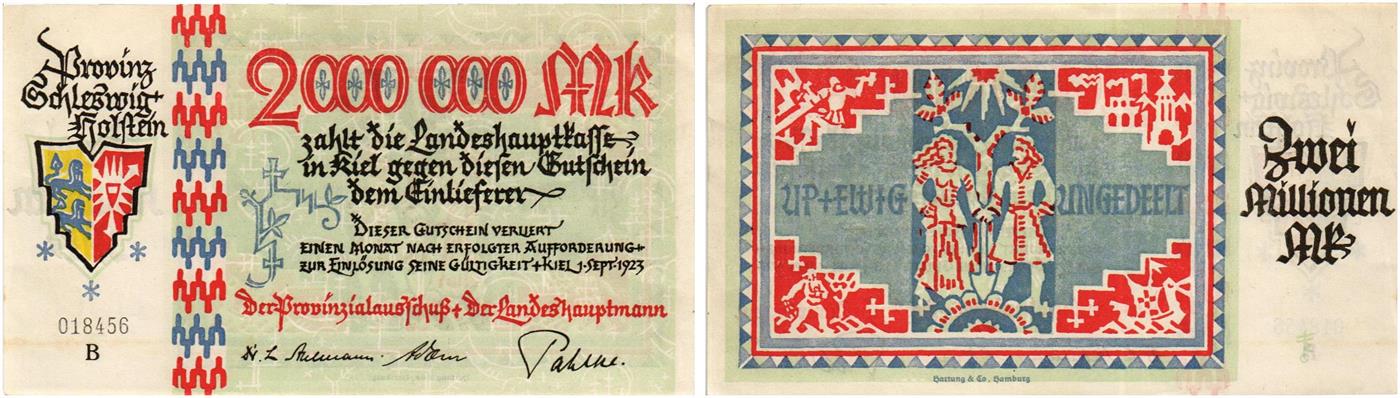 Provinz
Schleswig+
Holstein
018456
B
2000 000 Mk
zahlt die Landeshauptkasse
in Kiel gegen diesen Gutschein
dem Einlieferer
Dieser Gutschein verliert
einen Monat nach erfolgter Aufforderung+
zur Einlösung seine Gültigkeit+Kiel 1.Sept.1923
Der Provinzialausschuß+Der Landeshauptmann
Pahlke.
UP+EWIG UNGEDEELT
Hartung & Co, Hamburg
Zwei
Millionen
Mk